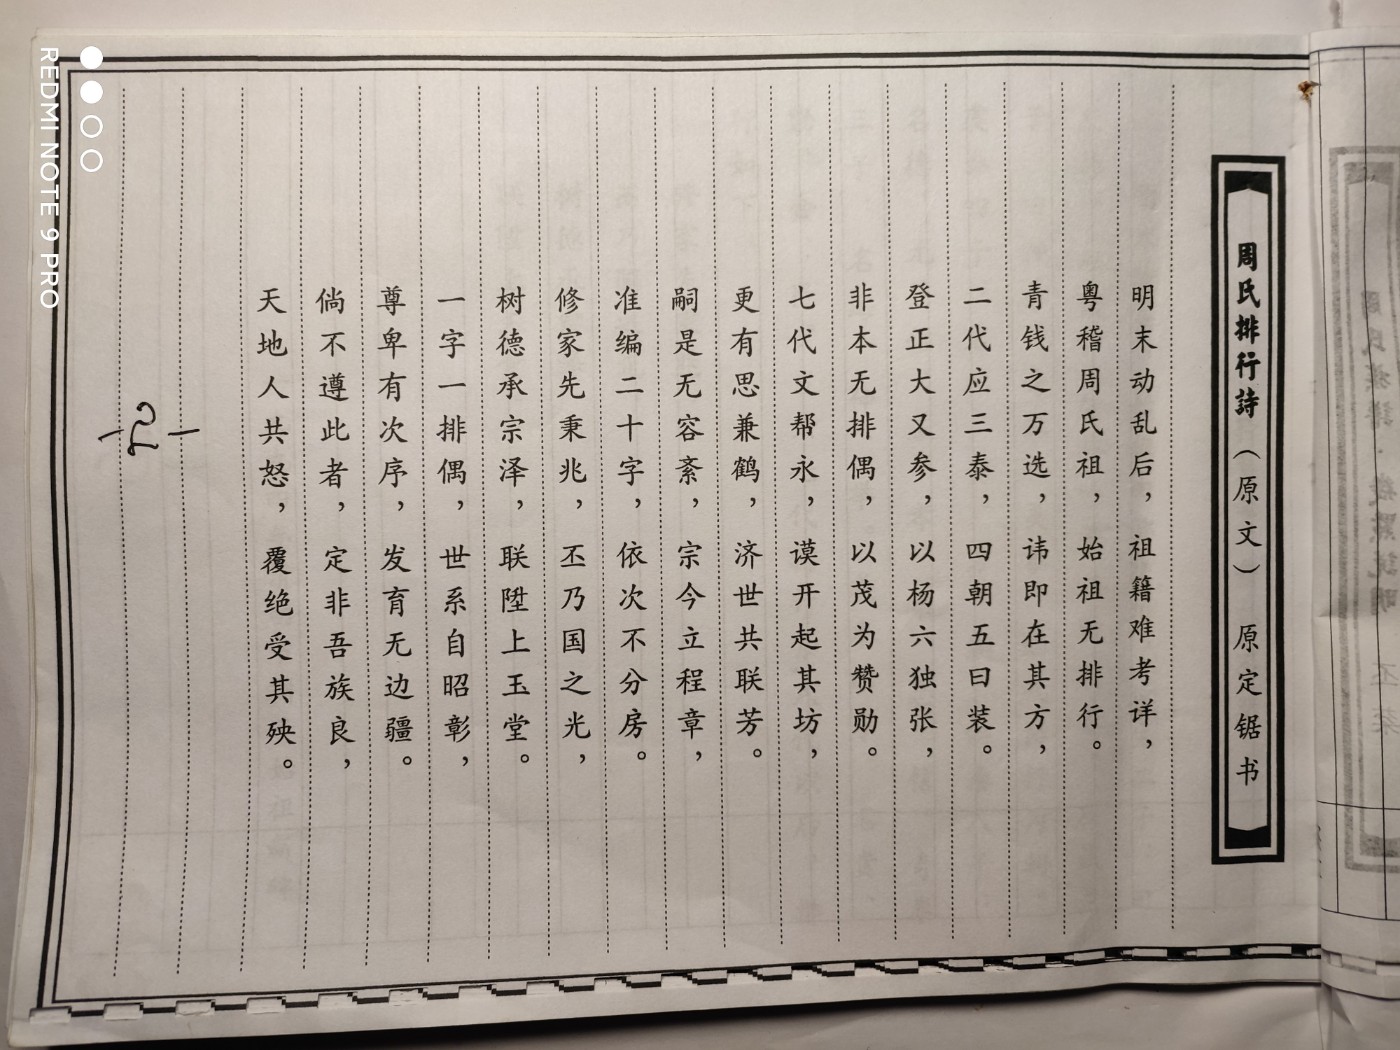 周氏排行詩（原文） 原定锯书
明末动乱后，祖籍难考详，
粤稽周氏祖，始祖无排行。
青钱之万选，讳即在其方，
二代应三泰，四朝五曰装。
登正大又参，以杨六独张，
非本无排偶，以茂为赞勋。
七代文帮永，谟开起其坊，
更有思兼鹤，济世共联芳。
嗣是无容紊，宗今立程章，
准编二十字，依次不分房。
修家先秉兆，丕乃国之光，
树德承宗泽，联陞上玉堂。
一字一排偶，世系自昭彰，
尊卑有次序，发育无边疆。
倘不遵此者，定非吾族良，
天地人共怒，覆绝受其殃。
REDMI NOTE 9 PRO